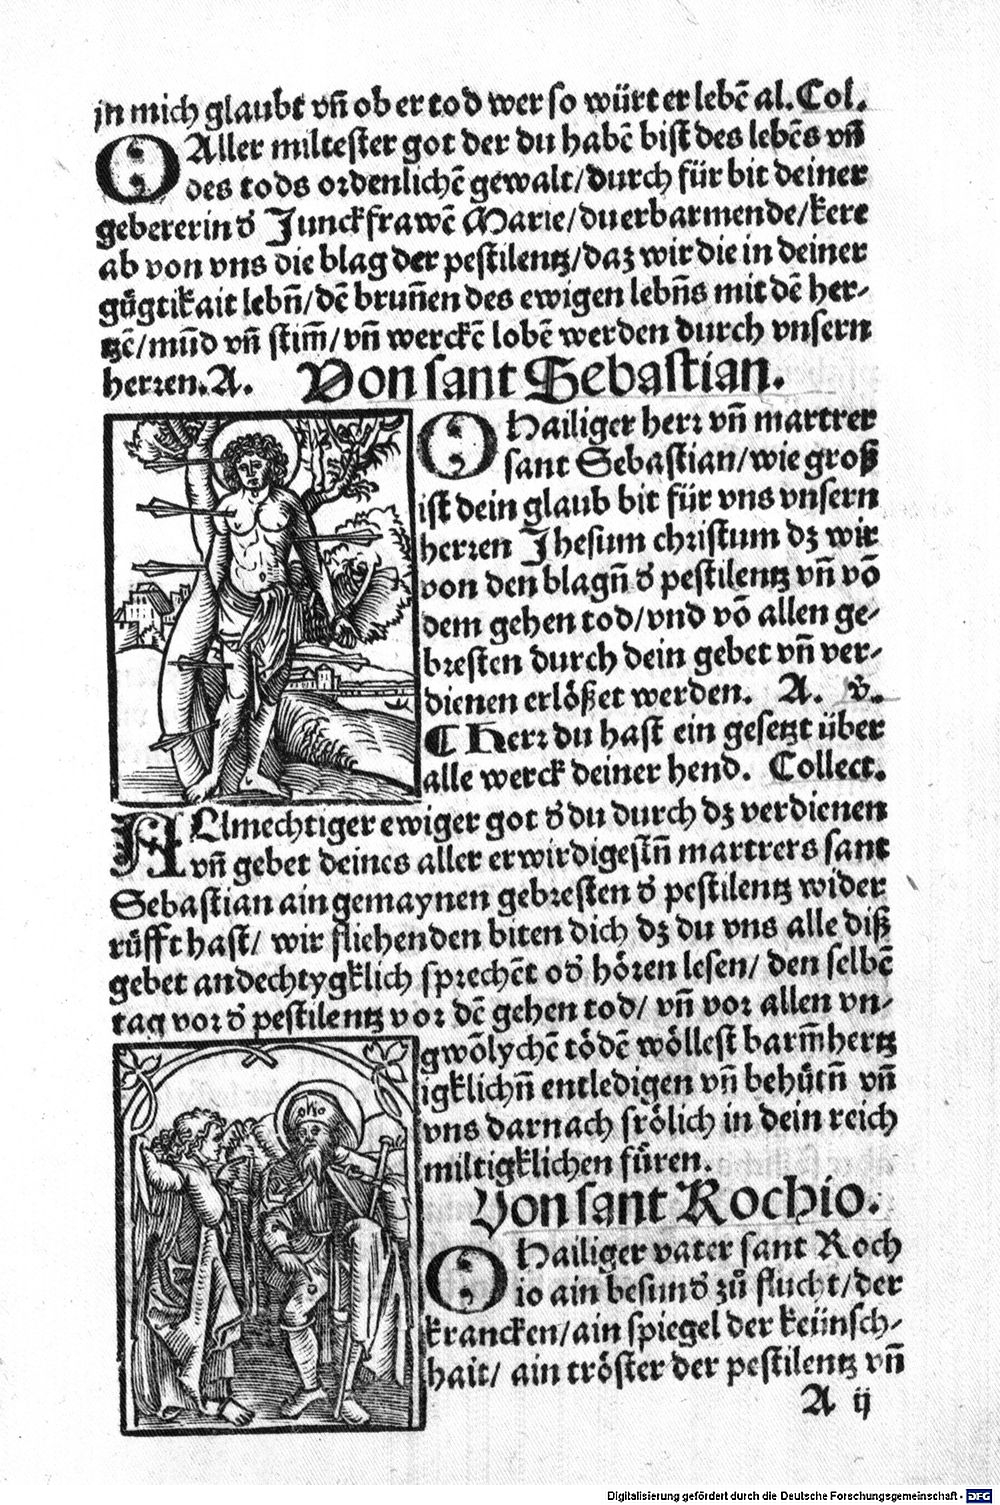 in mich glaubt vn̄ ob er tod wer so würt er lebē al. Col.
O Aller miltester got der du habē bist des lebēs vn̄
des tods ordenlichē gewalt/durch für bit deiner
gebererin d̕ Junckfrawē Marie/du erbarmende/kere
ab von vns die blag der pestilentz/daz wir die in deiner
gůgtikait lebn̄/dē brun̄en des ewigen lebn̄s mit dē her⸗
tzē/mūd vn̄ stim̄/vn̄ werckē lobē werden durch vnsern
herren. A. Von sant Sebastian.
O Hailiger herr vn̄ martrer
sant Sebastian/wie groß
ist dein glaub bit für vns vnsern
herren Jhesum christum dz wir
von den blagn̄ d̕ pestilentz vn̄ vō
dem gehen tod/vnd vō allen ge⸗
bresten durch dein gebet vn̄ ver⸗
dienen erlößet werden. A. v̄.
¶ Herr du hast ein gesetzt über
alle werck deiner hend. Collect.
ALmechtiger ewiger got d̕ du durch dz verdienen
vn̄ gebet deines aller erwirdigestn̄ martrers sant
Sebastian ain gemaynen gebresten d̕ pestilentz wider
růfft hast/ wir fliehenden biten dich dz du vns alle diß
gebet andechtygklich sprechēt od̕ hören lesen/ den selbē
tag vor d̕ pestilentz vor dē gehen tod/ vn̄ vor allen vn⸗
gwölychē tödē wöllest barm̄hertz
igklichn̄ entledigen vn̄ behůtn̄ vn̄
vns darnach frölich in dein reich
miltigklichen fůren.
Von sant Rochio.
O Hailiger vater sant Roch
io ain besund̕ zů flucht/der
krancken/ain spiegel der keünsch⸗
hait/ ain tröster der pestilentz vn̄
A ij
Digitalisierung gefördert durch die Deutsche Forschungsgemeinschaft - DFG